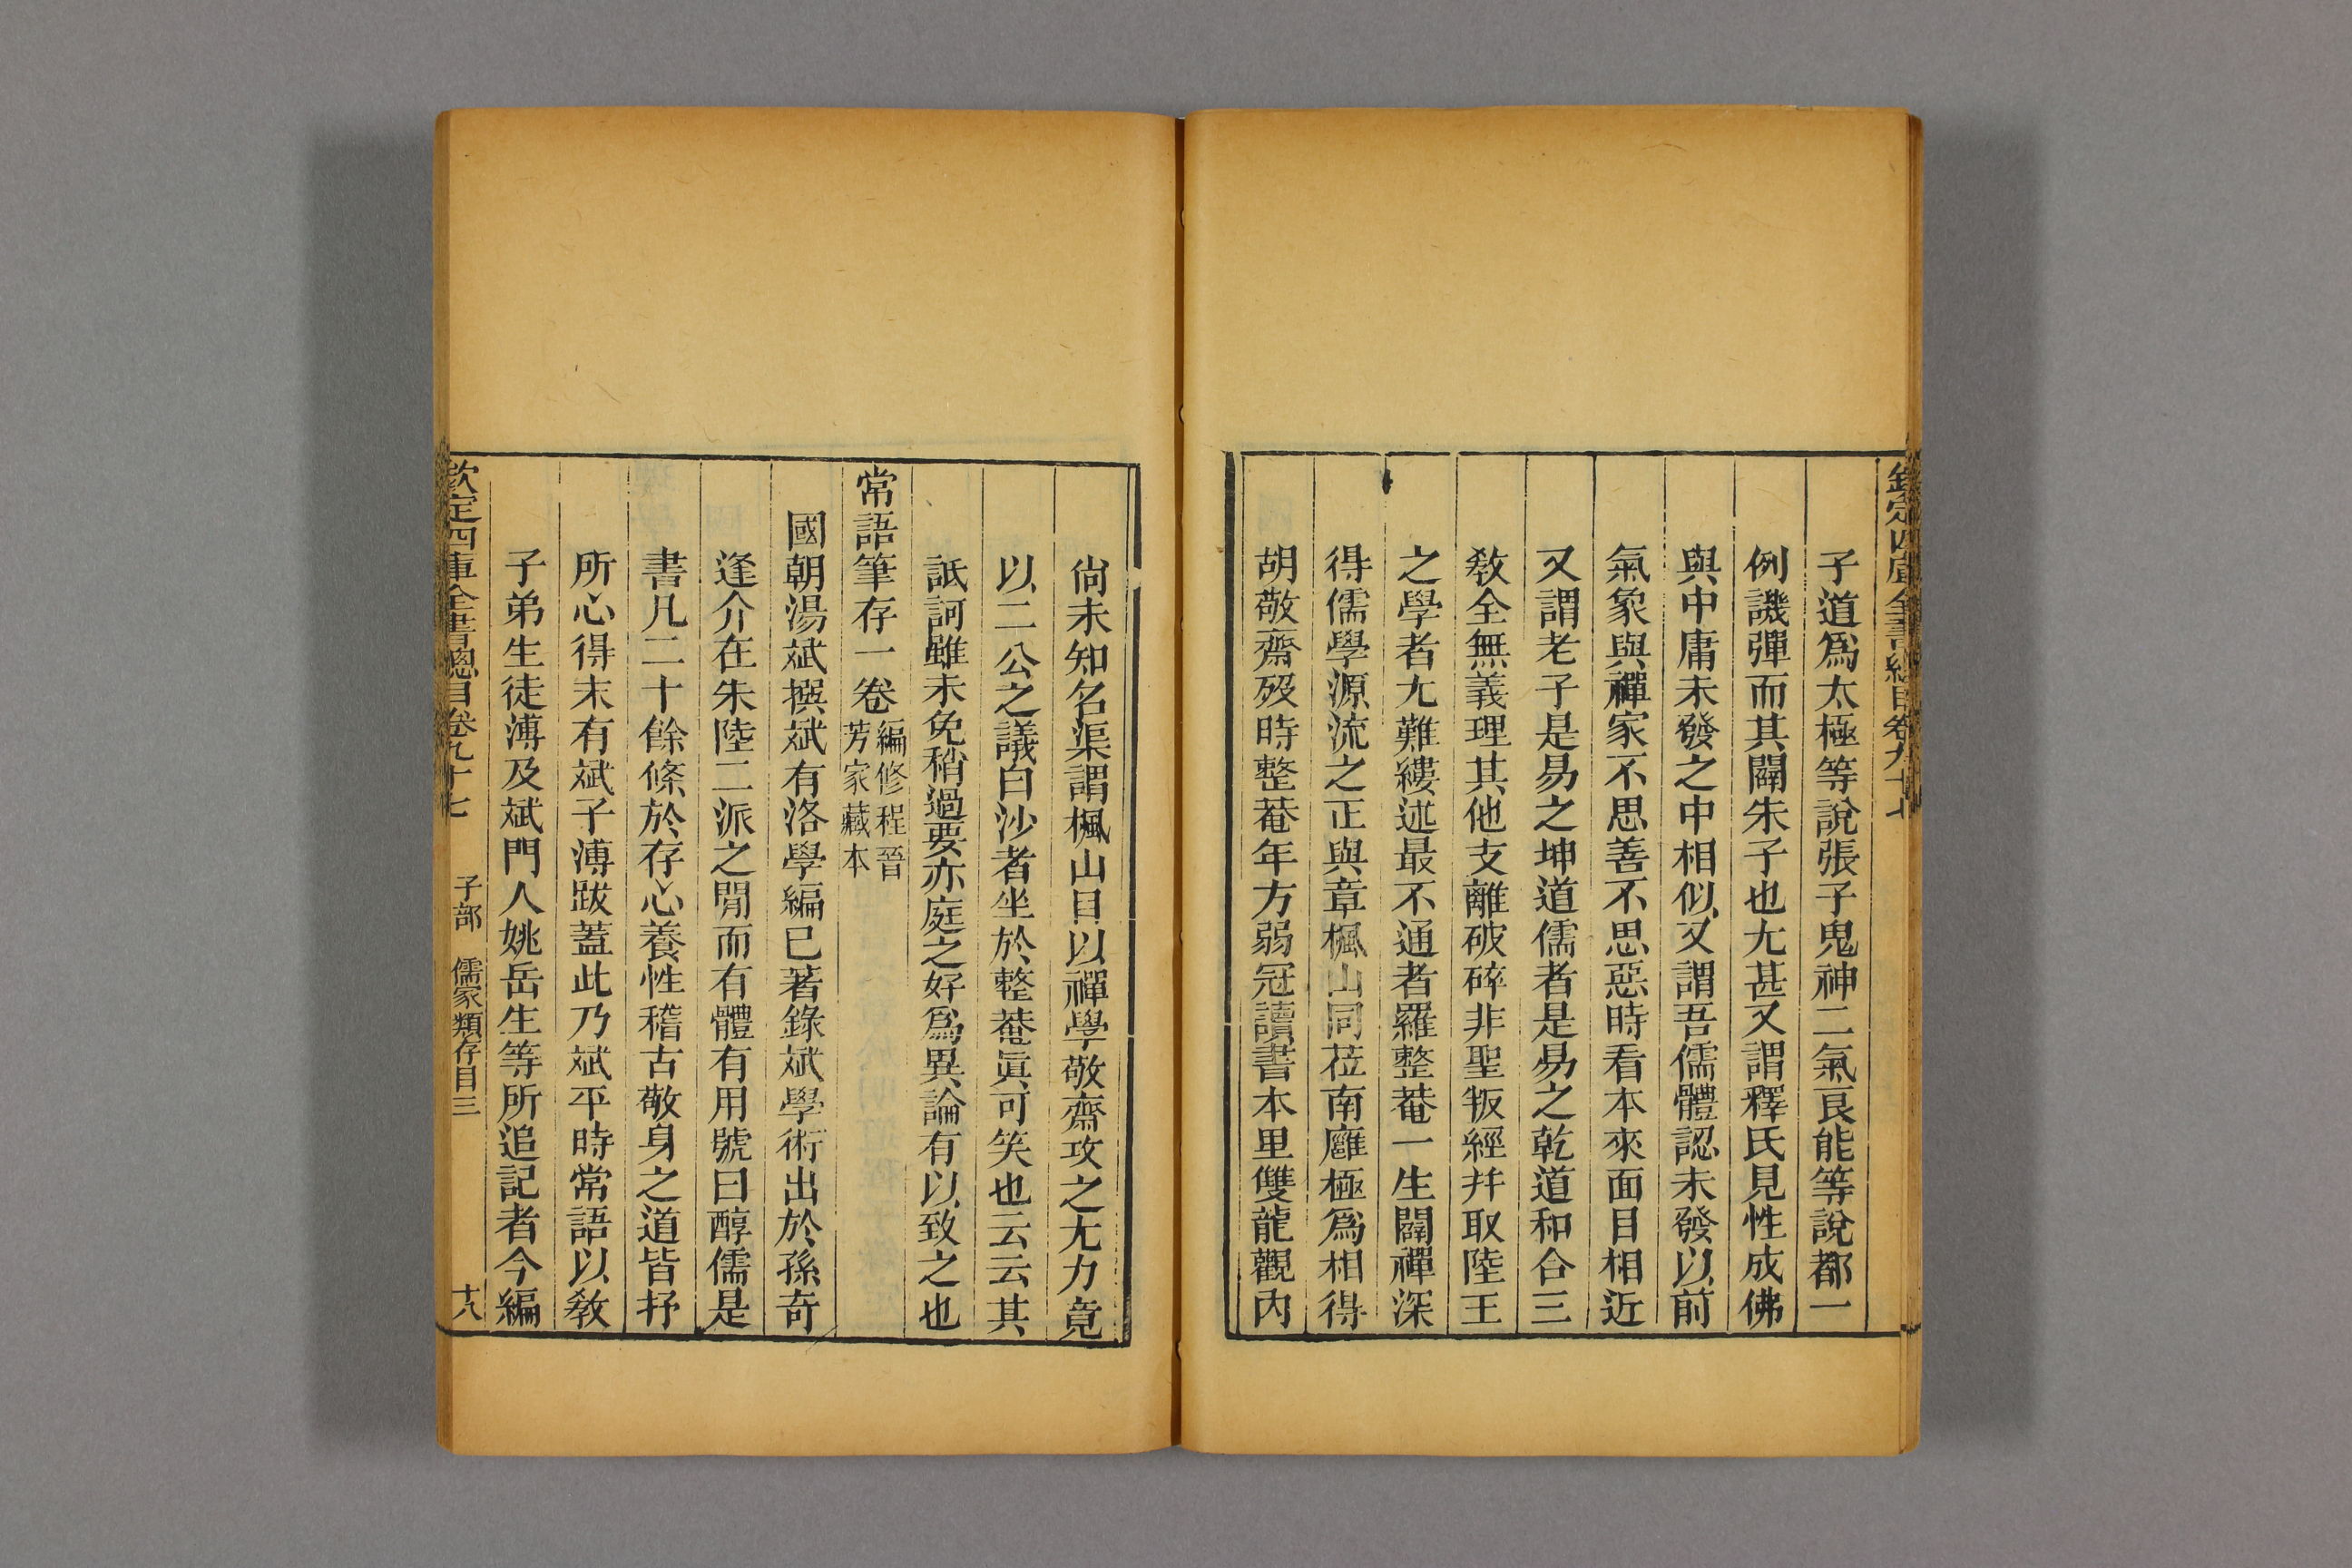 欽定四庫全書總目卷九十七
子道爲太極等說張子鬼神二氣良能等說都一
例譏彈而其闢朱子也尤甚又謂釋氏見性成佛
與中庸未發之中相似又謂吾儒體認未發以前
氣象與禪家不思善不思惡時看本來面目相近
又謂老子是易之坤道儒者是易之乾道和合三
敎全無義理其他支離破碎非聖叛經幷取陸王
之學者尤難縷述最不通者羅整菴一生闢禪深
得儒學源流之正與章楓山同莅南廱極爲相得
胡敬齋歿時整菴年方弱冠讀書本里雙龍觀內
尙未知名渠謂楓山目以禪學敬齋攻之尤力竟
以二公之議白沙者坐於整菴眞可笑也云云其
詆訶雖未免稍過要亦庭之好爲異論有以致之也
常語筆存一卷編修程晉
芳家藏本
國朝湯斌撰斌有洛學編已著錄斌學術出於孫奇
逢介在朱陸二派之閒而有體有用號曰醇儒是
書凡二十餘條於存心養性稽古敬身之道皆抒
所心得末有斌子溥跋蓋此乃斌平時常語以敎
子弟生徒溥及斌門人姚岳生等所追記者今編
欽定四庫全書總目卷九十七 子部 儒家類存目三 十八